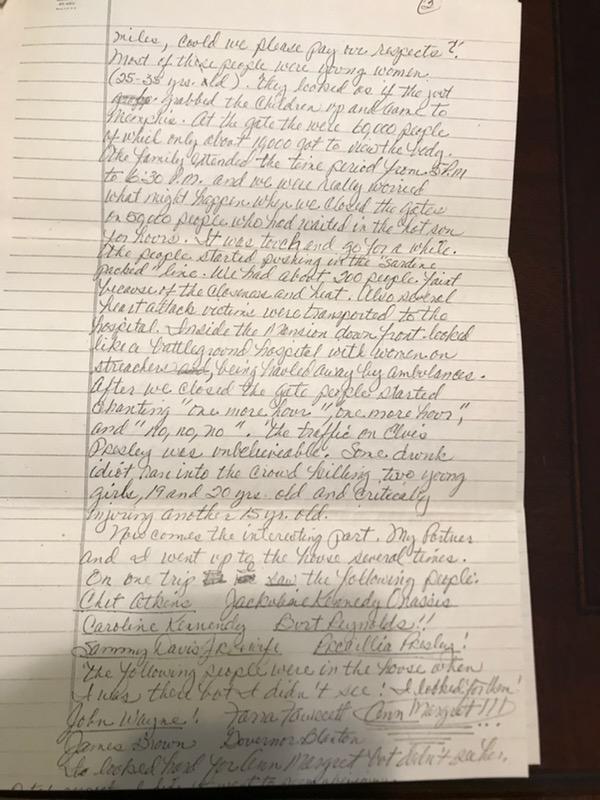 3
miles, could we please pay our respects?".
Most of these people were young women.
(25-35 yrs. old). They looked as if the just
grabbed the children up and came to
Memphis. At the gate the were 60,000 people
of which only about 19000 got to view the body.
The family attended the time period from 5 P.M
to 6:30 P.M. and we were really worried
what might happen when we closed the gates
on people who had waited in the hot sun
for hours. It was touch and go for a while.
The people started pushing in the "sardine
packed" line. We had about 200 people faint
because of the closeness and heat. Also several
heart attack victims were transported to the
hospital. Inside the Mansion down front looked
like a battleground hospital with women on
streachers being hauled away by ambulances.
After we closed the gate people started
chanting "one more hour", "one more hour",
and "no, no, no". The traffic on Elvis
Presley was unbelieveable. Some drunk
idiot ran into the crowd killing two young
girls, 19 and 20 yrs. old and critically
injuring another 15 yr. old.
Now comes the interesting part. My Partner
and I went up to the house several times.
On one trip saw the following people.
Chet Atkins Jackoline Kennedy Onassis
Caroline Kennendy Burt Reynolds!!
Sammy Davis Jr & wife Presley!
The following people were in the house when
I was there but I didn't see! I looked for them!
John Wayne! Farra Fawcett Ann Margret!!!
James Brown Governor Blanton
looked hard for Ann Margret but didn't see her.